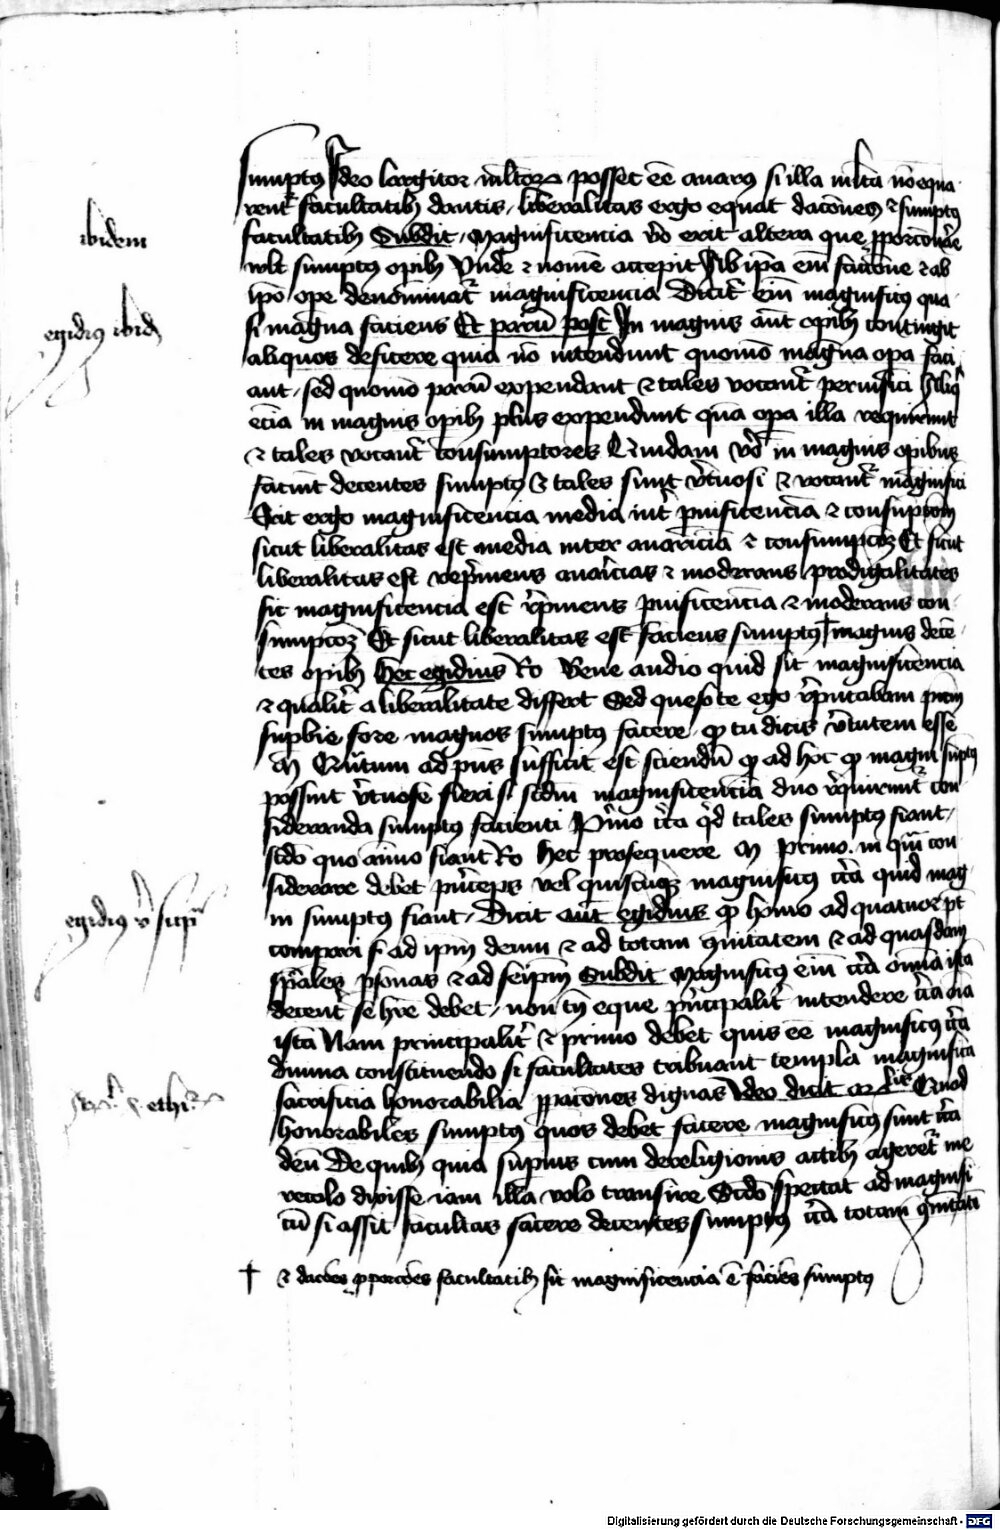 sumptus Ideo largitor multorum posset eē avarus si illa multa nō equa
rent facultatibus dantis / liberalitas ergo equat dacōnes & sumptus
ibidem
facultatibus Subdit / Magnificencia vero erit altera que proporcionare
vult sumptus opibus Unde & nomē accepit Ab ipā em̄ faccōne & ab
ipo ope denominat magnificencia Dicit em̄ magnificus qua
egidius ibid
si magna faciens Et parū post In magnis aut opibus contingit
aliquos deficere quia nō intendunt quomō magna opa faci
ant / sed quomō parū expendant & tales vocant parvifici Aliqi
ecia in magnis opibus plus expendunt quā opa illa requirunt
& tales vocant consumptores Quidam vero in magnis opibus
faciunt decentes sumptus & tales sunt virtuosi & vocant magnifici
Erit ergo magnificencia media int parvificencia & consumptōm
sicut liberalitas est media inter avariciā & consumpcōem Et sicut
liberalitas est reprimens avaricias & moderans prodigalitates
sic magnificencia est reprimens parvificencia & moderans con
sumpcōem Et sicut liberalitas est faciens sumptus † magnis decē
tes opibus Hec egidius Ro Bene audio quid sit magnificencia
& qualit a liberalitate differt Sed queso te ego reputabam
supbie fore magnos sumptus facere / quod tu dicis virtutem esse
M Quātum ad pns sufficit est sciendū quod ad hoc quod magni sumptus
possint virtuose fieri scdm magnificencia duo requirunt con
sideranda sumptus facienti Primo circa quid tales sumptus fiant /
scdo quo animo fiant Ro hec prosequere M Primo in quū con
siderare debet princeps vel quicumque magnificus circa quid mag
egidius v sup
ni sumptus fiant / Dicit aut egidius quod homo ad quatuor pt
compari s ad ipm deum & ad totam comitatem & ad quasdam
spāles psonas & ad seipm Subdit Magnificus em̄ circa omnia ista
decent se hrē debet / non tn eque principalit intendere circa oīa
ista Nam principalit & primo debet quis eē magnificus circa
divina constituendo si facultates tribuant templa magnifica
sacrificia honorabilia pparacōnes dignas Ideo dicit Quod
ethi
honorabiles sumptus quos debet facere magnificus sunt circa
deū De quibus quia superius cum de religionis actibus ageret me
recolo dixisse iam illa volo transire Scdo spectat ad magnifi
cū si assit facultas facere decentes sumptus circa totam comitatē
† & dacōes proporcōes facultatibus sic magnificencia ē faciēs sumptus
Digitalisierung gefördert durch die Deutsche Forschungsgemeinschaft - DFG